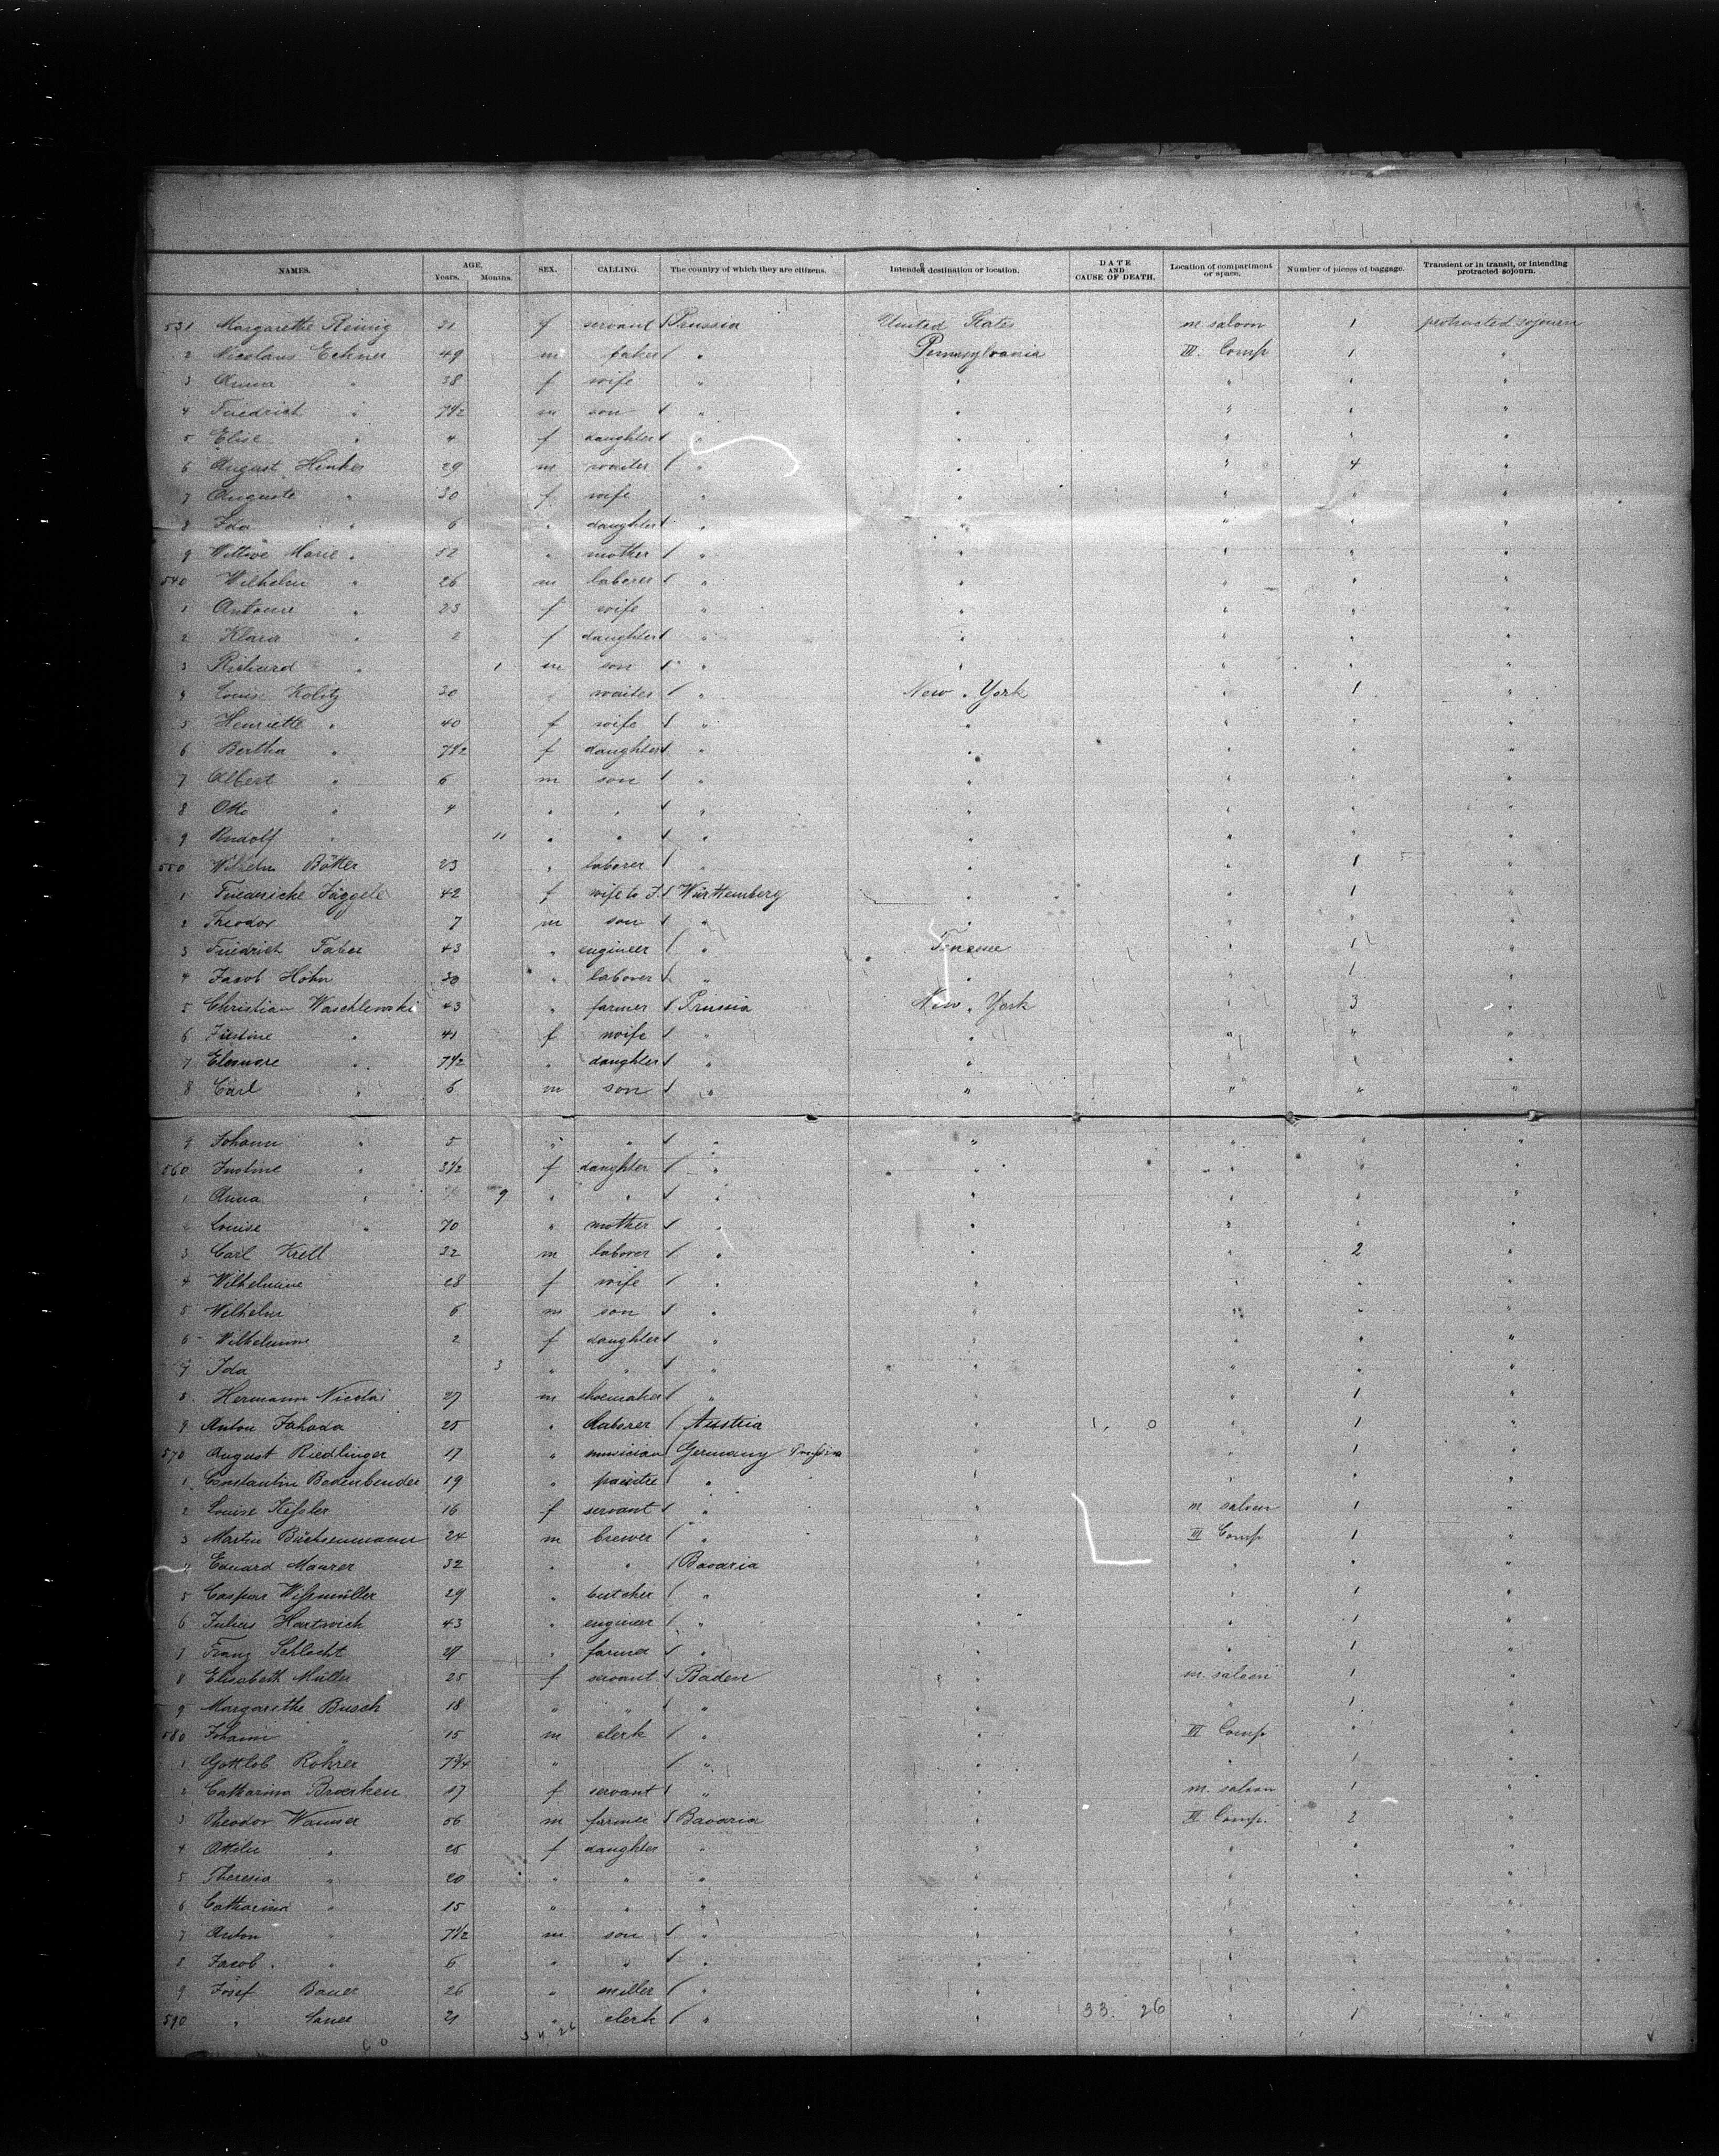 NAMES. AGE. Years. Months. SEX. CALLING. The country of which they are citizens. Intended destination or location. DATE AND CAUSE OF DEATH. Location of compartment or space. Number of pieces of baggage. Transient or in transit, or intending protracted sojourn.
531 Margarethe Reinig 21 f servant Prussia United States m saloon 1 protracted sojourn
2 Nicolaus 49 m " Pennsylvania III. Comp 1 "
3 Anna " 38 f wife " " " " "
4 Friedrich " 7 1/2 m son " " " " "
5 Elise " 4 f daughter " " " " "
6 August Henkes 29 m waiter " " " 4 "
7 Auguste " 30 f wife " " " " "
8 Ida " 6 " daughter " " " " "
9 Wittwe Marie " 52 " mother " " " " "
540 Wilhelm " 26 m laborer " " " " "
1 " 23 f wife " " " " "
2 Klara " 2 f daughter " " " " "
3 Richard " 1 m son " " " " "
4 Louis Kolitz 30 waiter " New York " 1 "
5 Henriette " 40 f wife " " " " "
6 Bertha " 7 1/2 f daughter " " " " "
7 Albert " 6 m son " " " " "
8 Otto " 4 " " " " " " "
9 Rudolf " 11 " " " " " " "
550 Wilhelm 23 " laborer " " " 1 "
1 Friedericke Jäggele 42 f wife to J. Württemberg " " 1 "
2 Theodor 7 m son " " " " "
3 Friedrich Faber 43 " engineer " " 1 "
4 Jacob Höhn 30 " laborer " " " 1 "
5 Christian Waschlewski 43 " farmer Prussia New York " 3 "
6 Justine " 41 f wife " " " " "
7 Eleonore " 7 1/2 " daughter " " " " "
8 Carl " 6 m son " " " " "
9 Johann " 5 " " " " " " "
560 Justine " 3 1/2 f daughter " " " " "
1 Anna " 9 " " " " " " "
2 Louise " 70 " mother " " " " "
3 Carl Krell 32 m laborer " " " 2 "
4 Wilhelmine 28 f wife " " " " "
5 Wilhelm 6 m son " " " " "
6 Wilhelmine 2 f daughter " " " " "
7 Ida 3 " " " " " " "
8 Hermann Nicolai 27 m shoemaker " " " 1 "
9 Anton Jahoda 25 " laborer Austria " 1. 0 " 1 "
570 August Riedlinger 17 " musician Germany " " 1 "
1 Constantin Bedenbender 19 " " " " " "
2 Louise Keßler 16 f servant " " m saloon 1 "
3 Martin Büchsenmann 24 m brewer " " III Comp 1 "
4 Eduard Maurer 32 " " Bavaria " " " "
5 Caspar Wißmüller 29 " butcher " " " 1 "
6 Julius Hartwich 43 " engineer " " " 1 "
7 Franz Schlacht " farmer " " " 1 "
8 Elisabeth Müller 25 f servant Baden " m. saloon 1 "
9 Margarethe Busch 18 " " " " " 1 "
580 Johann " 15 m clerk " " III Comp " "
1 Gottlob Rohrer 7 3/4 " " " " 1 "
2 Catharina 17 f servant " " m. saloon 1 "
3 Theodor Wanner 56 m farmer Bavaria " III Comp. 2 "
4 Ottilie " 25 f daughter " " " " "
5 Theresia " 20 " " " " " " "
6 Catharina " 15 " " " " " " "
7 Anton " 7 1/2 m son " " " " "
8 Jacob " 6 " " " " " " "
9 Josef Bauer 26 " miller " " " " "
590 " 21 " clerk " " 33. 26 " 1 "
60 34 26